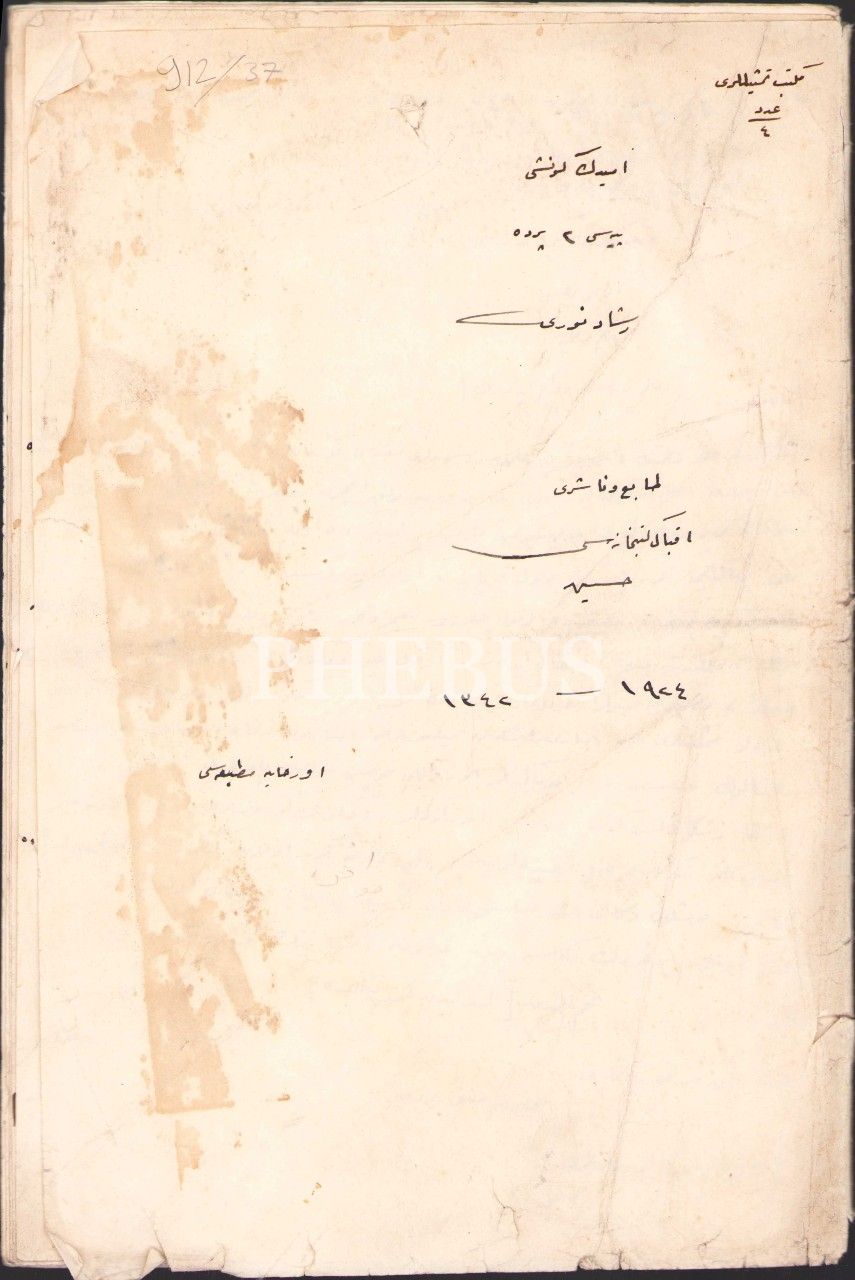 912/37
مكتب تمثيللرى
عدد
٤
اميدك كونشى
پيه‌سى ٢ پرده
رشاد نورى
طابع و ناشرى
اقبال كتبخانه‌سى
حسين
١٩٢٤ — ١٣٤٢
اورخانيه مطبعه‌سى
PHEBUS